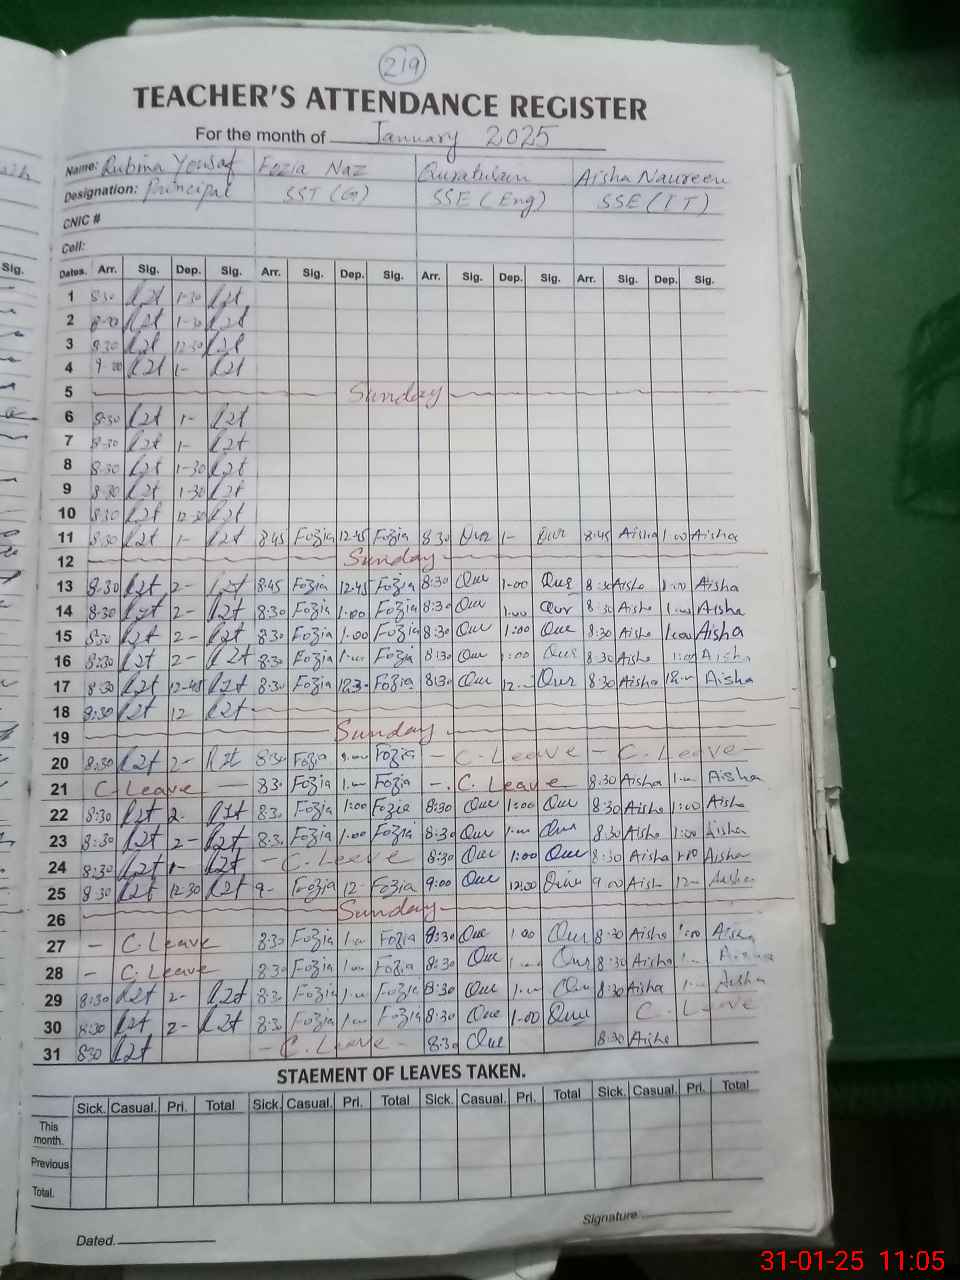 219
TEACHER'S ATTENDANCE REGISTER
For the month of January 2025
Name: Rubina Yousaf Fozia Naz Quratulain Aisha Naureen
Designation: Principal SST (G) SSE (Eng) SSE (IT)
CNIC #
Cell:
Sig. Dates. Arr. Sig. Dep. Sig. Arr. Sig. Dep. Sig. Arr. Sig. Dep. Sig. Arr. Sig. Dep. Sig.
1 8:30 1-30
2 1-30
3 8:30 12-30
4 9-00 1-
5 Sunday
6 8:30 1-
7 8-30 1-
8 8.30 1-30
9 8.30 1-30
10 8:30 12-30
11 8:30 1- 8:45 Fozia 12:45 Fozia 8:30 Qur 1- Qur 8:45 Aisha 1:00 Aisha
12 Sunday
13 8.30 2- 8:45 Fozia 12:45 Fozia 8:30 Que 1-00 Que 8:30 Aisha 1:00 Aisha
14 8-30 2- 8:30 Fozia 1:00 Fozia 8:30 Que 1:00 Qur 8:30 Aisha 1:00 Aisha
15 8:30 2- 8:30 Fozia 1:00 Fozia 8:30 Que 1:00 Que 8:30 Aisha 1:00 Aisha
16 8:30 2- 8:30 Fozia 1:00 Fozia 8:30 Que 1:00 Que 8:30 Aisha 1:00 Aisha
17 8:30 12-45 8:30 Fozia 12.3- Fozia 8:30 Que 12.- Our 8:30 Aisha 12.- Aisha
18 8:30 12
19 Sunday
20 8:30 2- 8:30 Fozia Fozia - C. Leave - C. Leave -
21 C Leave - 8:3. Fozia 1.- Fozia - C. Leave 8:30 Aisha 1.- Aisha
22 8:30 2- 8:3. Fozia 1:00 Fozia 8:30 Que 1:00 Que 8:30 Aisha 1:00 Aisha
23 8:30 2- 8:3. Fozia 1.00 Fozia 8:30 Que 1.- Que 8:30 Aisha 1:00 Aisha
24 8:30 1- - C. Leave 8:30 Que 1:00 Que 8:30 Aisha Aisha
25 8:30 12-30 9- Fozia 12- Fozia 9:00 Que 12:00 9:00 Aisha 12- Aisha
26 Sunday
27 - C. Leave 8:30 Fozia 1.- Fozia 8:30 Que 1:00 Que 8:30 Aisha 1:00 Aisha
28 - C. Leave 8:30 Fozia 1.- Fozia 8:30 Que Our 8:30 Aisha 1.- Aisha
29 8:30 2- 8:3. Fozia 1.- Fozia 8:30 Que 1.- Que 8:30 Aisha 1.- Aisha
30 8:30 2- 8:3. Fozia 1.- Fozia 8:30 Que 1-00 Que C. Leave
31 8:30 - C. Leave - 8:30 Que 8:30 Aisha
STAEMENT OF LEAVES TAKEN.
Sick. Casual. Pri. Total Sick. Casual. Pri. Total Sick. Casual. Pri. Total Sick. Casual. Pri. Total
This
month.
Previous
Total.
Signature
Dated.
31-01-25 11:05